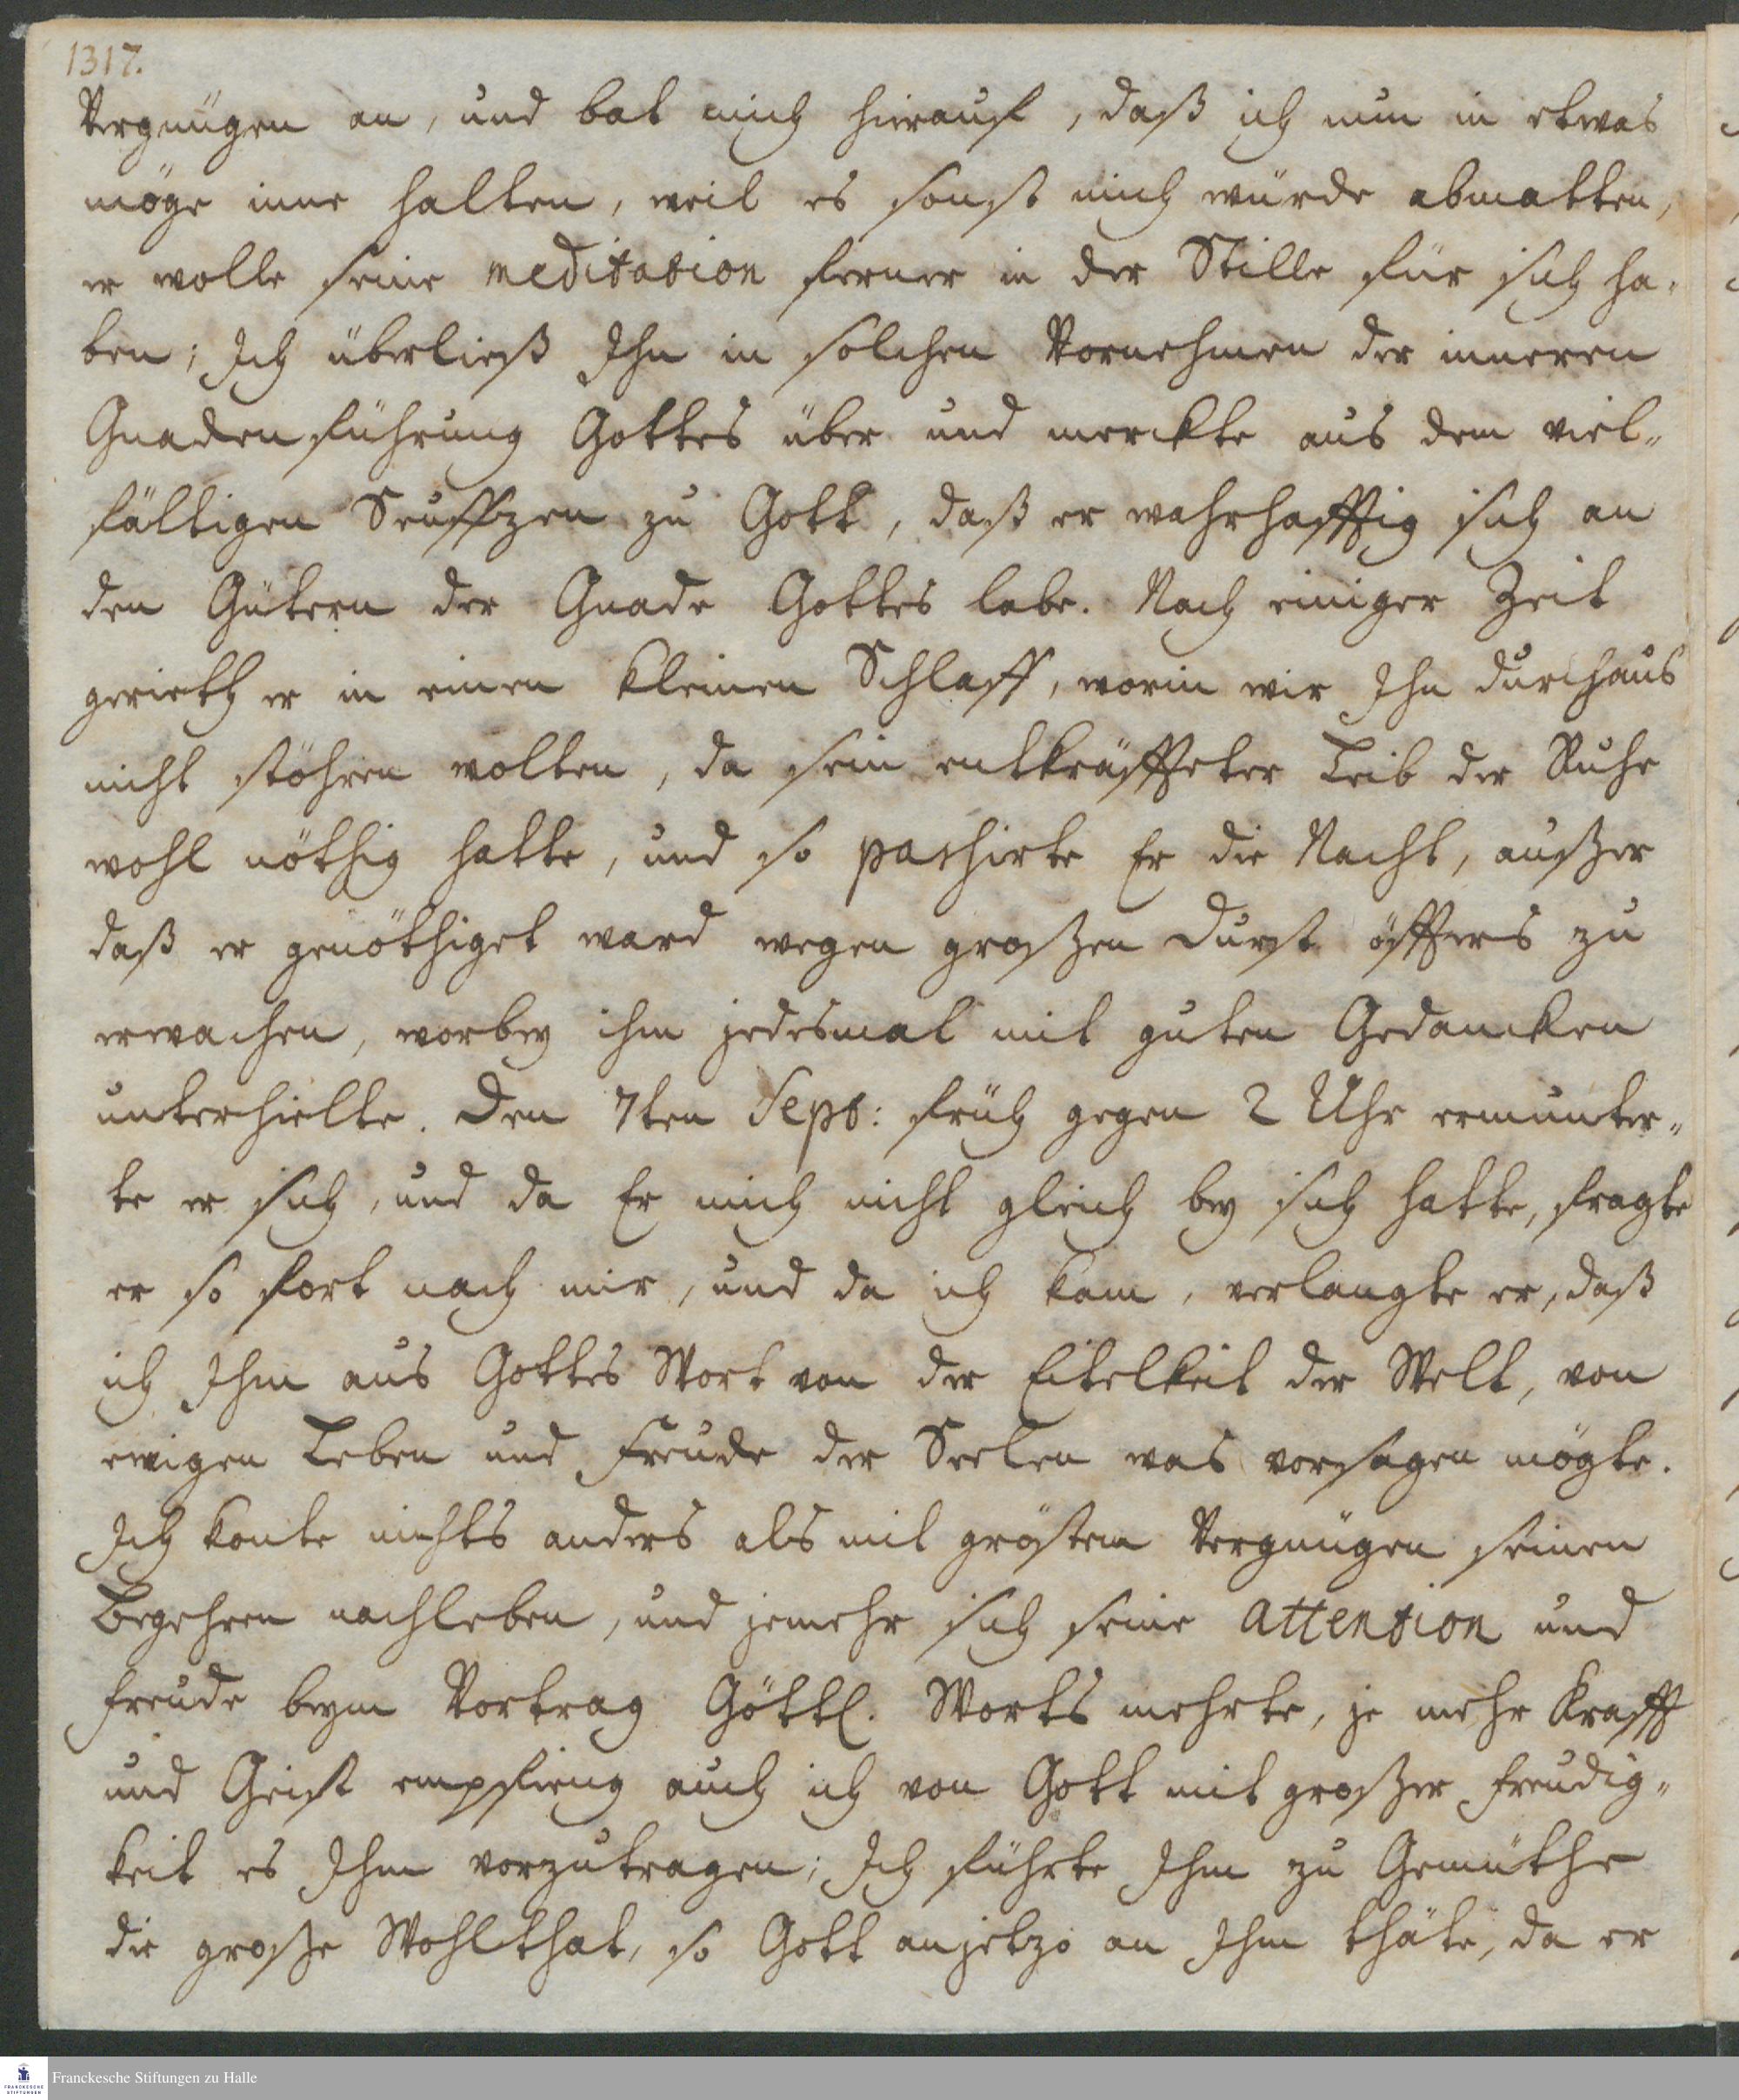 1317.
Vergnügen an, und bat mich hierauf, daß ich nun in etwas
möge inne halten, weil es sonst mich würde abmatten,
er wolle seine meditation ferner in der Stille für sich ha-
ben; Ich überließ Ihn in solchen Vornehmen der inneren
Gnadenführung Gottes über und merckte aus dem viel-
fältigen Seuffzen zu Gott, daß er wahrhafftig sich an
den Gütern der Gnade Gottes labe. Nach einiger Zeit
gerieth er in einen kleinen Schlaff, worin wir Ihn durchaus
nicht stöhren wolten, da sein entkräffteter Leib der Ruhe
wohl nöthig hatte, und so pashirte Er die Nacht, außer
daß er genöthiget ward wegen großen Durst öffters zu
erwachen, worbey ihm jedesmal mit guten Gedancken
unterhielte. Den 7ten Sept: früh gegen 2 Uhr ermunter-
te er sich, und da Er mich nicht gleich bey sich hatte, fragte
er so fort nach mir, und da ich kam, verlangte er, daß
ich Ihm aus Gottes Wort von der Eitelkeit der Welt, von
ewigen Leben und Freude der Seelen was vorsagen mögte.
Ich konte nichts anders als mit grösten Vergnügen seinen
Begehren nachleben, und jemehr sich seine attention und
Freude beym Vortrag Göttl. Worts mehrte, je mehr Krafft
und Geist empfieng auch ich von Gott mit großer Freudig-
keit es Ihm vorzutragen; Ich führte Ihm zu Gemüthe
die große Wohlthat, so Gott anjetzo an Ihm thäte, da er
FRANCKESCHE STIFTUNGEN
Franckesche Stiftungen zu Halle